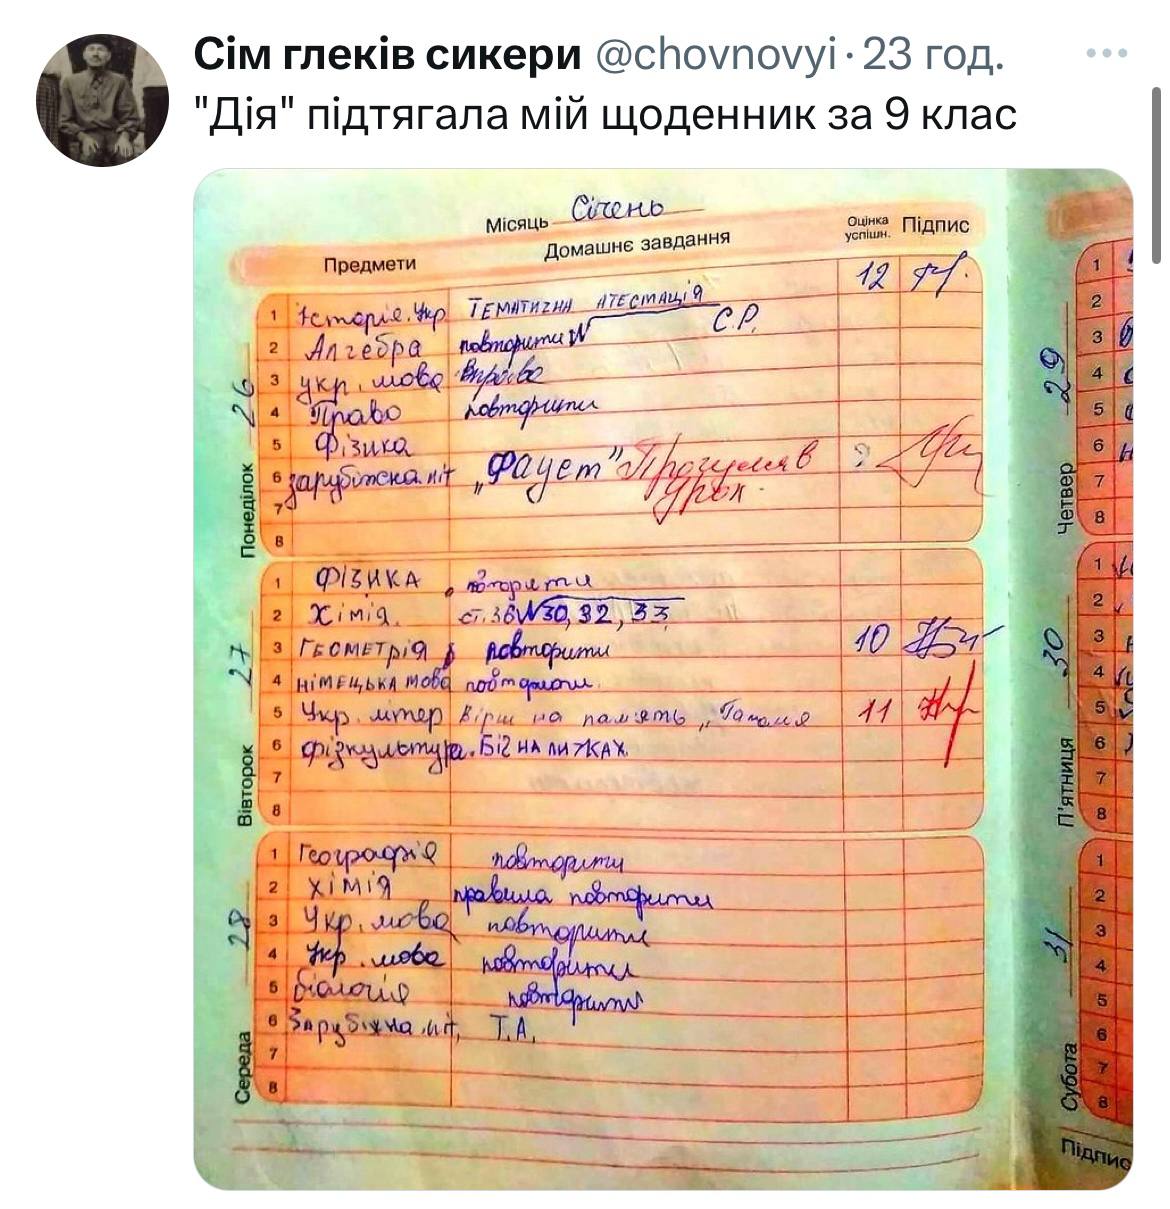 Сім глеків сикери @chovnovyi · 23 год.
"Дія" підтягала мій щоденник за 9 клас
Місяць Січень
Предмети Домашнє завдання Оцінка успішн. Підпис
Понеділок 26
1 Історія. Укр. Тематична атестація 12
2 Алгебра повторити С.Р.
3 укр. мова Вправа
4 Право повторити
5 Фізика
6 зарубіжна літ „Фауст" Прогуляв ?
7 урок.
8
Вівторок 27
1 Фізика повторити
2 Хімія. ст. 36 № 30, 32, 33
3 Геометрія повторити 10
4 німецька мова повторити.
5 Укр. літер вірш на память „ 11
6 фізкультура. Біг на лижках.
7
8
Середа 28
1 Географія повторити
2 хімія правила повторити
3 Укр. мова повторити
4 Укр. мова повторити
5 біологія повторити
6 Зарубіжна літ, Т.А.
7
8
Четвер 29
1
2
3
4
5
6
7
8
П'ятниця 30
1
2
3
4
5
6
7
8
Субота 31
1
2
3
4
5
6
7
8
Підпис